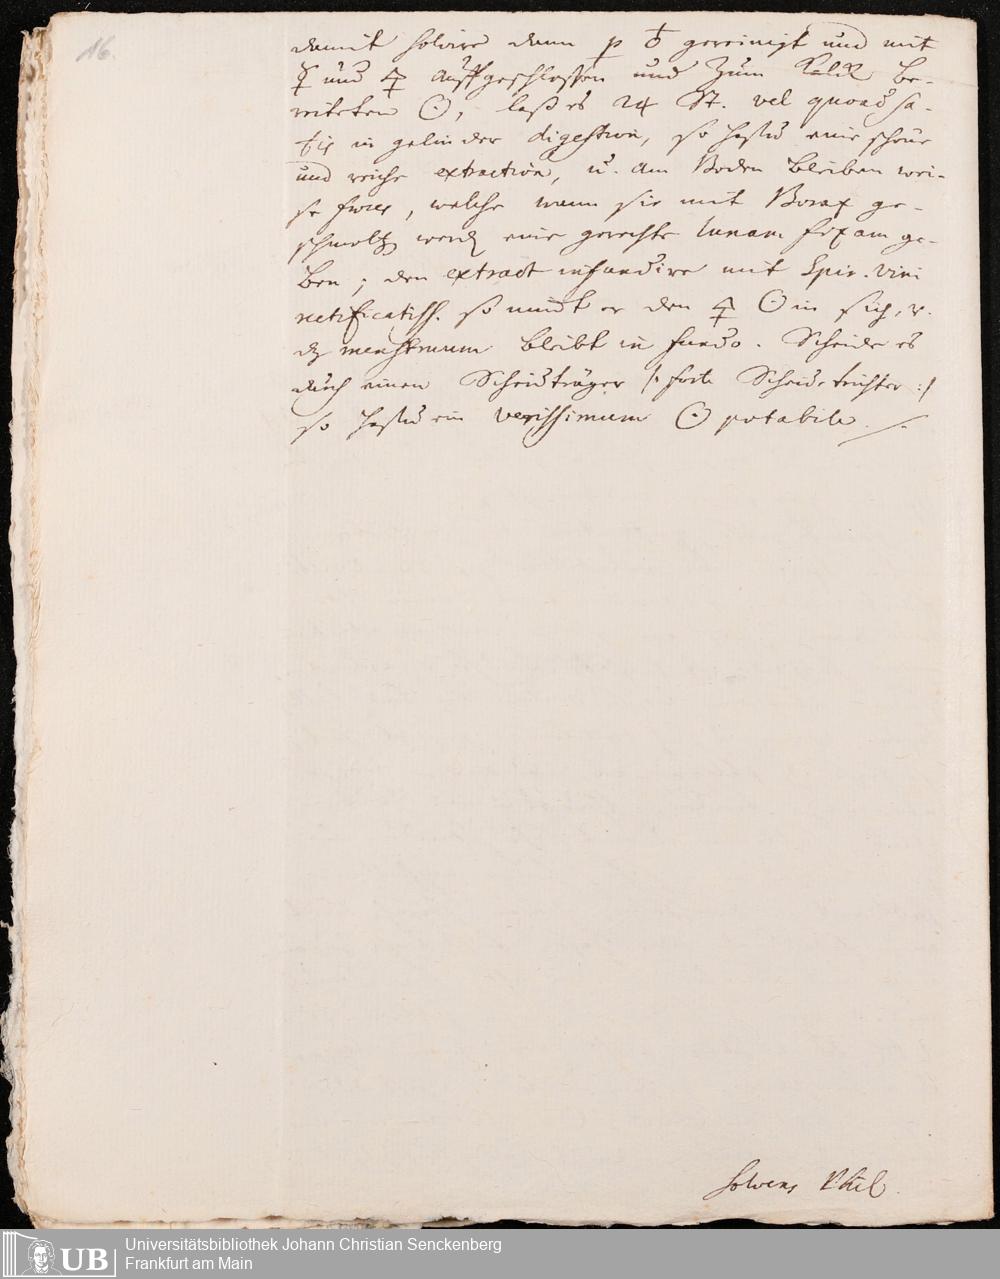 16.
damit solvire dann p ♁ gereinigt und mit
☿ und 🜍 auffgeschlossen und zum Kalck be-
reiteten ☉, laß es 24 St. vel quoad sa-
tis in gelinder digestion, so hastu eine schöne
und reiche extraction, u. am Boden bleiben wei-
se feces, welche wann sie mit Borax ge-
schmoltz werdn eine gerechte lunam fixam ge-
ben; den extract infundire mit Spir. vini
rectificatiss. so nimbt er den 🜍 ☉ in sich, u.
dz menstruum bleibt in fundo. Scheide es
durch einen Scheidträger /: forte Scheidetrichter :/
so hastu ein verissimum ☉ potabile.
solvens Phil.
UB
Universitätsbibliothek Johann Christian Senckenberg
Frankfurt am Main